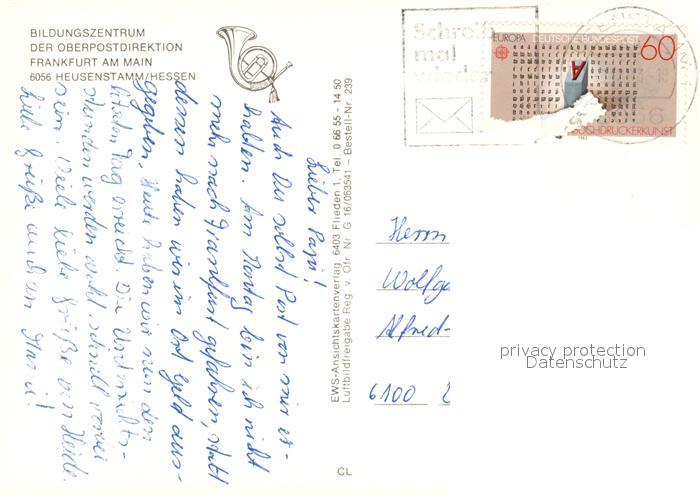 BILDUNGSZENTRUM
DER OBERPOSTDIREKTION
FRANKFURT AM MAIN
6056 HEUSENSTAMM/HESSEN
Schreib
mal
wieder
EUROPA DEUTSCHE BUNDESPOST
60
BUCHDRUCKERKUNST
Lieber Papi!
Auch Du sollst Post von mir er-
halten. Am Montag bin ich nicht
mehr nach Frankfurt gefahren, statt
dessen haben wir im Ort Geld aus-
gegeben. Heute haben wir nun den
letzten Tag erreicht. Die Unterrichts-
stunden werden wohl schnell vorbei
sein. Viele liebe Grüße von Heide.
Liebe Grüße auch an
EWS-Ansichtskartenverlag 6403 Flieden 1, Tel. 0 66 55 - 14 50
Luftbildfreigabe Reg. v. Ofr. Nr. G 16/063541 – Bestell-Nr. 239
CL
Herrn
Wolfga
Alfred-
6100
privacy protection
Datenschutz